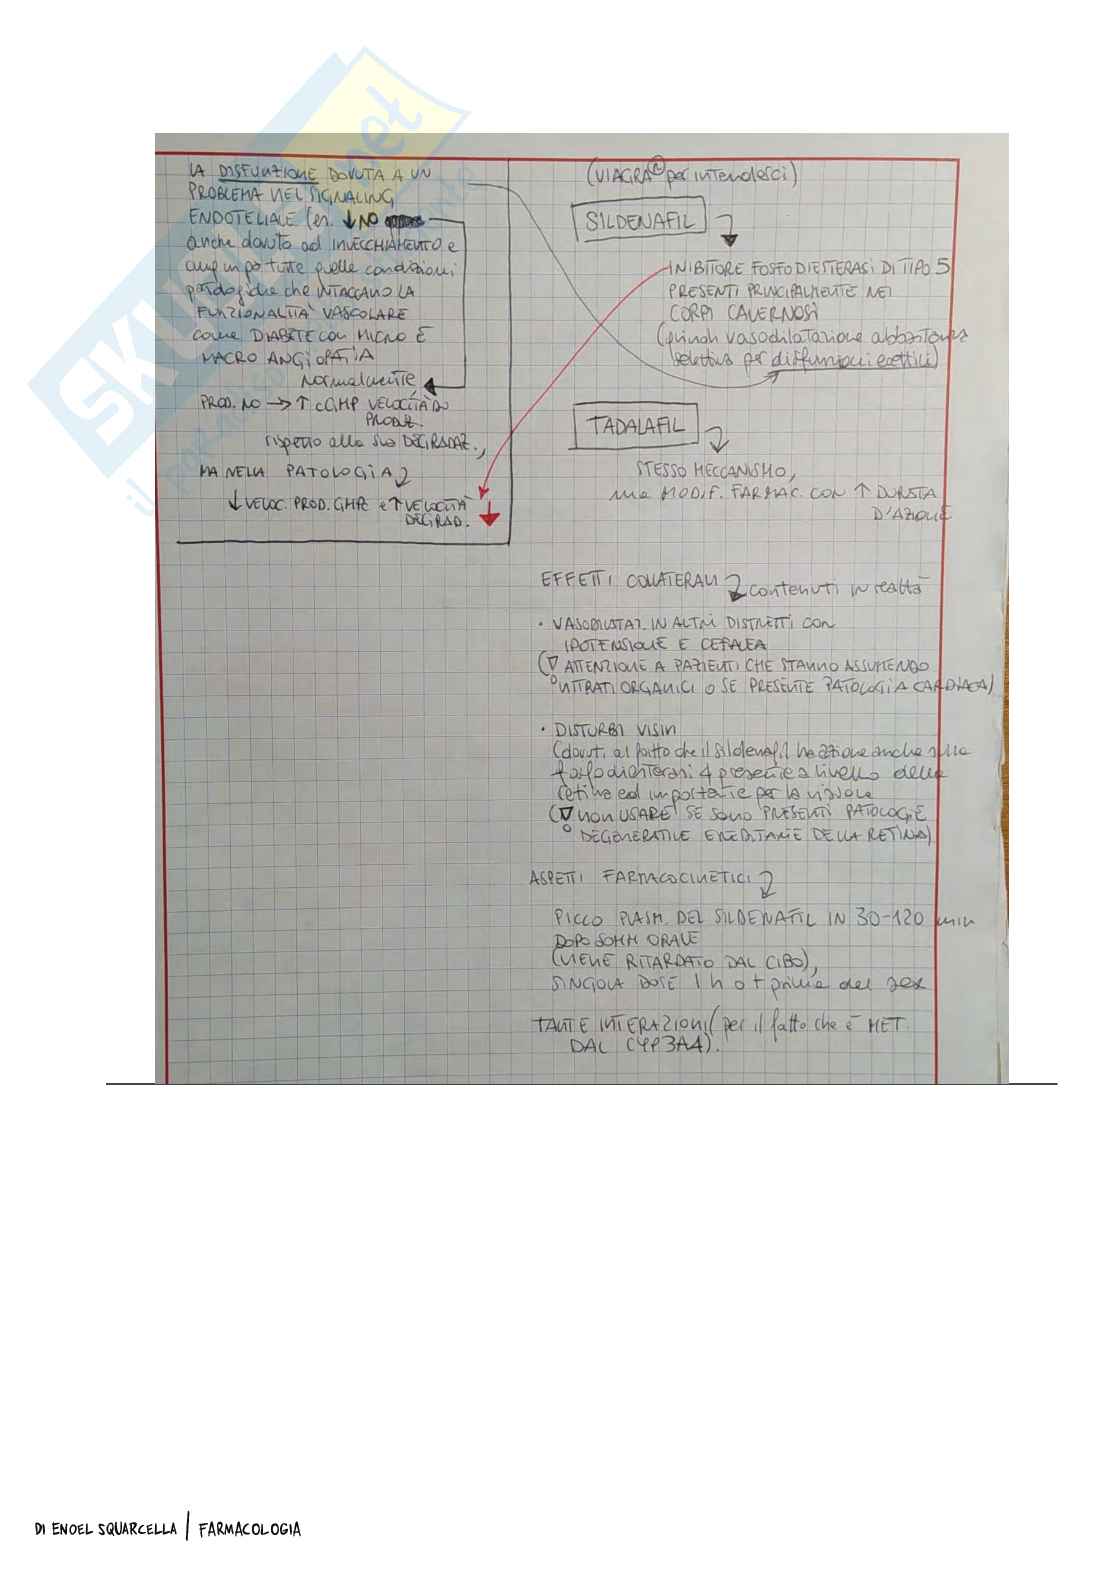 LA DISFUNZIONE DOVUTA A UN
PROBLEMA NEL SIGNALING
ENDOTELIALE (es. ↓NO
anche dovuto ad INVECCHIAMENTO e
tutte quelle condizioni
patologiche che INTACCANO LA
FUNZIONALITÀ VASCOLARE
come DIABETE con MICRO E
MACRO ANGIOPATIA
normalmente
PROD. NO → ↑ cGMP VELOCITÀ DI
PRODUZ.
rispetto alla sua DEGRADAZ.,
MA NELLA PATOLOGIA
↓ VELOC. PROD. GMPc e ↑ VELOCITÀ
DEGRAD. ↓
(VIAGRA® per intenderci)
SILDENAFIL
INIBITORE FOSFODIESTERASI DI TIPO 5
PRESENTI PRINCIPALMENTE NEI
CORPI CAVERNOSI
(quindi vasodilatazione abbastanza
selettiva per disfunzioni erettili)
TADALAFIL
STESSO MECCANISMO,
ma MODIF. FARMAC. CON ↑ DURATA
D'AZIONE
EFFETTI COLLATERALI contenuti in realtà
• VASODILATAZ. IN ALTRI DISTRETTI con
IPOTENSIONE E CEFALEA
(ATTENZIONE A PAZIENTI CHE STANNO ASSUMENDO
NITRATI ORGANICI O SE PRESENTE PATOLOGIA CARDIACA)
• DISTURBI VISIVI
(dovuti al fatto che il sildenafil ha azione anche sulla
fosfodiesterasi 4 presente a livello della
retina ed importante per la visione
(non USARE SE sono PRESENTI PATOLOGIE
DEGENERATIVE EREDITARIE DELLA RETINA)
ASPETTI FARMACOCINETICI
PICCO PLASM. DEL SILDENAFIL IN 30-120 min
DOPO SOMM ORALE
(VIENE RITARDATO DAL CIBO),
SINGOLA DOSE 1 h o + prima del sex
TANTE INTERAZIONI (per il fatto che è MET.
DAL CYP3A4).
DI ENOEL SQUARCELLA | FARMACOLOGIA